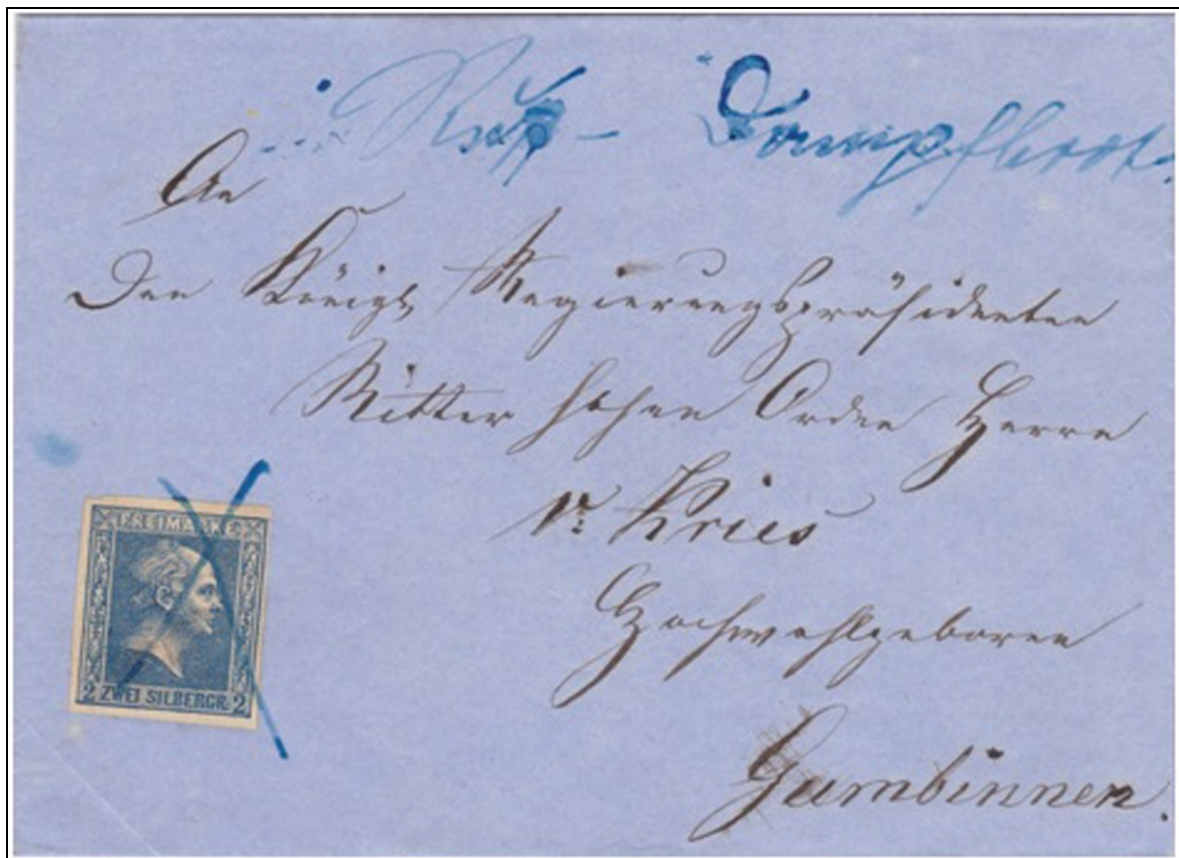 Ruß- Dampfboot.
An
Den Königl Regierungspräsidenten
Ritter hoher Orden Herrn
v: Kries
Hochwohlgeboren
Gumbinnen.
FREIMARKE
2 ZWEI SILBERGR. 2